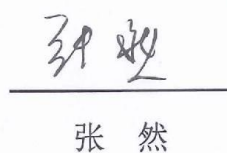 张然
张 然